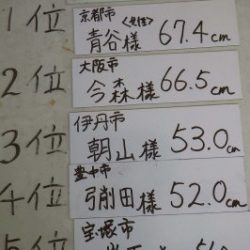 1位
京都市
青谷様 67.4cm
2位
大阪市
今森様 66.5cm
3位
伊丹市
朝山様 53.0cm
4位
豊中市
弓削田様 52.0cm
5位
宝塚市